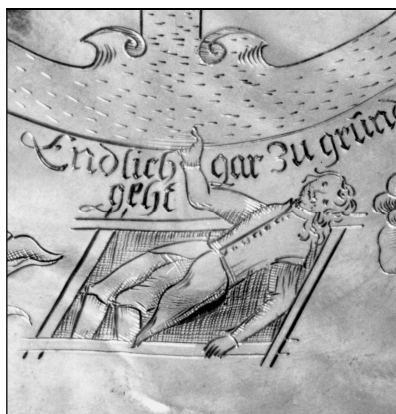 Endlich gar zu grund
geht